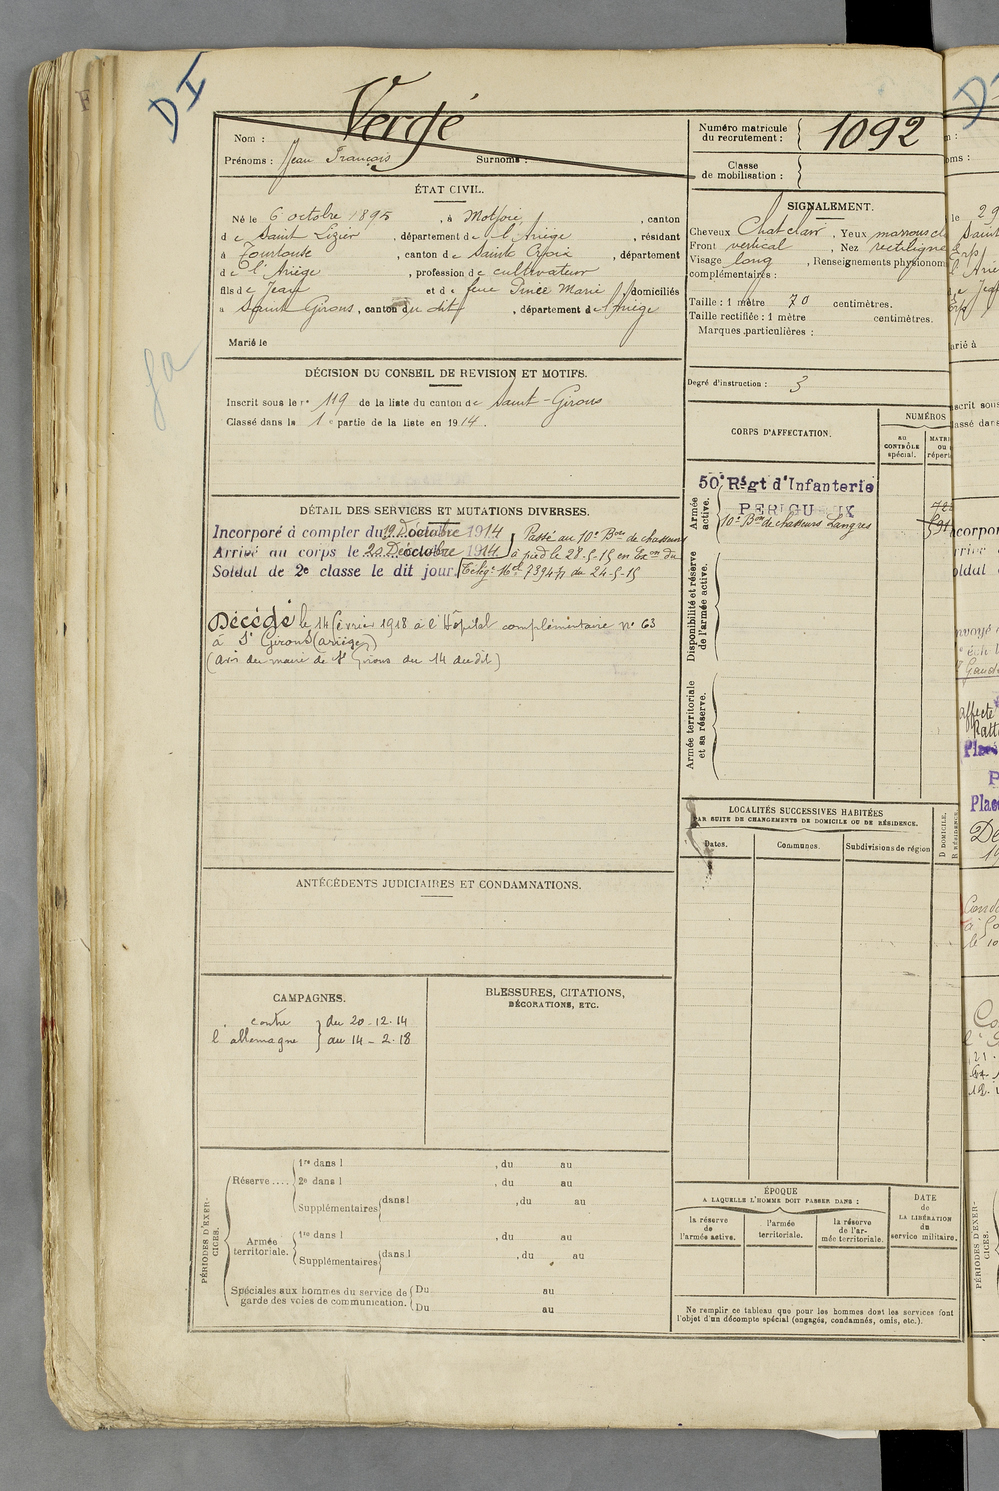 DI
Vergé
Nom :
Prénoms : Jean François Surnoms :
Numéro matricule du recrutement : 1092
Classe de mobilisation :
ÉTAT CIVIL.
Né le 6 octobre 1895, à , canton
de Saint Lizier, département de l'Ariège, résidant
à Tourtouse, canton de Sainte Croix, département
de l'Ariège, profession de cultivateur
fils de Jean et de feue Marie domiciliés
à Saint Girons, canton du dit, département de l'Ariège
Marié le
SIGNALEMENT.
Cheveux Chat clair. Yeux marrons cl
Front vertical, Nez rectiligne
Visage long, Renseignements physionom
complémentaires :
Taille : 1 mètre 70 centimètres.
Taille rectifiée : 1 mètre centimètres.
Marques particulières :
Degré d'instruction : 3
DÉCISION DU CONSEIL DE REVISION ET MOTIFS.
Inscrit sous le n° 119 de la liste du canton de Saint-Girons
Classé dans la 1e partie de la liste en 1914.
CORPS D'AFFECTATION.
NUMÉROS
au CONTRÔLE spécial.
MATRI
ou
répert
Armée active.
50e Régt d'Infanterie
PERIGUEUX
10e Bon de chasseurs Langres
Disponibilité et réserve de l'armée active.
Armée territoriale et sa réserve.
DÉTAIL DES SERVICES ET MUTATIONS DIVERSES.
Incorporé à compter du 19 Décembre 1914
Arrivé au corps le 20 Décembre 1914
Soldat de 2e classe le dit jour.
Passé au 10e Bon de chasseurs
à pied le 28-5-15 en Exon du
Télég. Mel 7394 du 24-5-15
Décédé le 14 février 1918 à l'Hôpital complémentaire n° 63
à St Girons (Ariège)
(avis du maire de St Girons du 14 du dit)
LOCALITÉS SUCCESSIVES HABITÉES
PAR SUITE DE CHANGEMENTS DE DOMICILE OU DE RÉSIDENCE.
Dates. Communes. Subdivisions de région
D DOMICILE. R RÉSIDENCE.
ANTÉCÉDENTS JUDICIAIRES ET CONDAMNATIONS.
CAMPAGNES.
contre du 20-12-14
l'allemagne au 14-2-18
BLESSURES, CITATIONS,
DÉCORATIONS, ETC.
PÉRIODES D'EXERCICES.
Réserve ....
1re dans l , du au
2e dans l , du au
Supplémentaires dans l , du au
Armée territoriale.
1re dans l , du au
Supplémentaires dans l , du au
Spéciales aux hommes du service de
garde des voies de communication.
Du au
Du au
ÉPOQUE
A LAQUELLE L'HOMME DOIT PASSER DANS :
la réserve de l'armée active.
l'armée territoriale.
la réserve de l'armée territoriale.
DATE de LA LIBÉRATION du service militaire.
Ne remplir ce tableau que pour les hommes dont les services font
l'objet d'un décompte spécial (engagés, condamnés, omis, etc.).